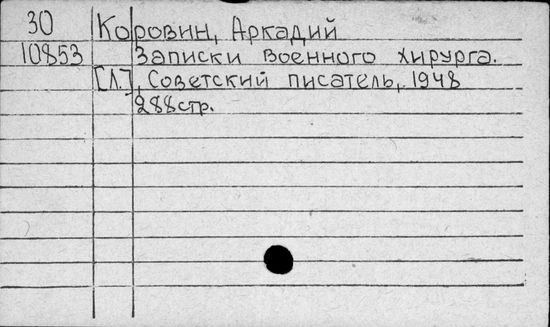 30 Коровин, Аркадий
10853 Записки военного хирурга.
[Л.], Советский писатель, 1948
288стр.